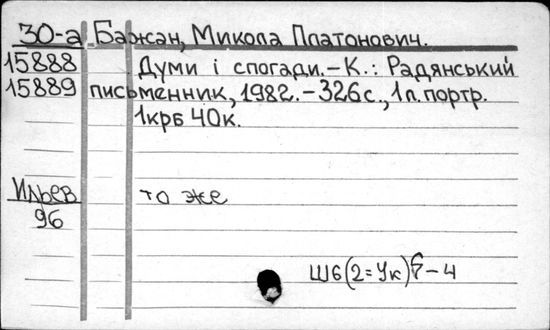 30-а Бажан, Микола Платонович.
15888 Думи і спогади.–К.: Радянський
15889 письменник, 1982.–326с., 1л.портр.
1крб 40к.
Ильев то же
96
Ш6(2=Ук)6–4